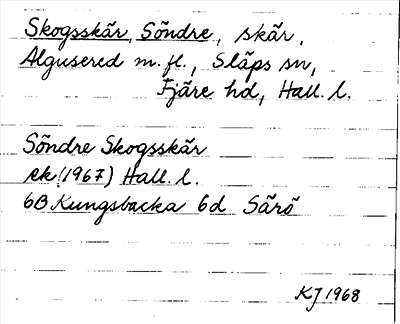 Skogsskär, Söndre, skär,
Algusered m. fl., Släps sn,
Fjäre hd, Hall. l.
Söndre Skogsskär
ek (1967) Hall. l.
6B Kungsbacka 6d Särö
KJ 1968